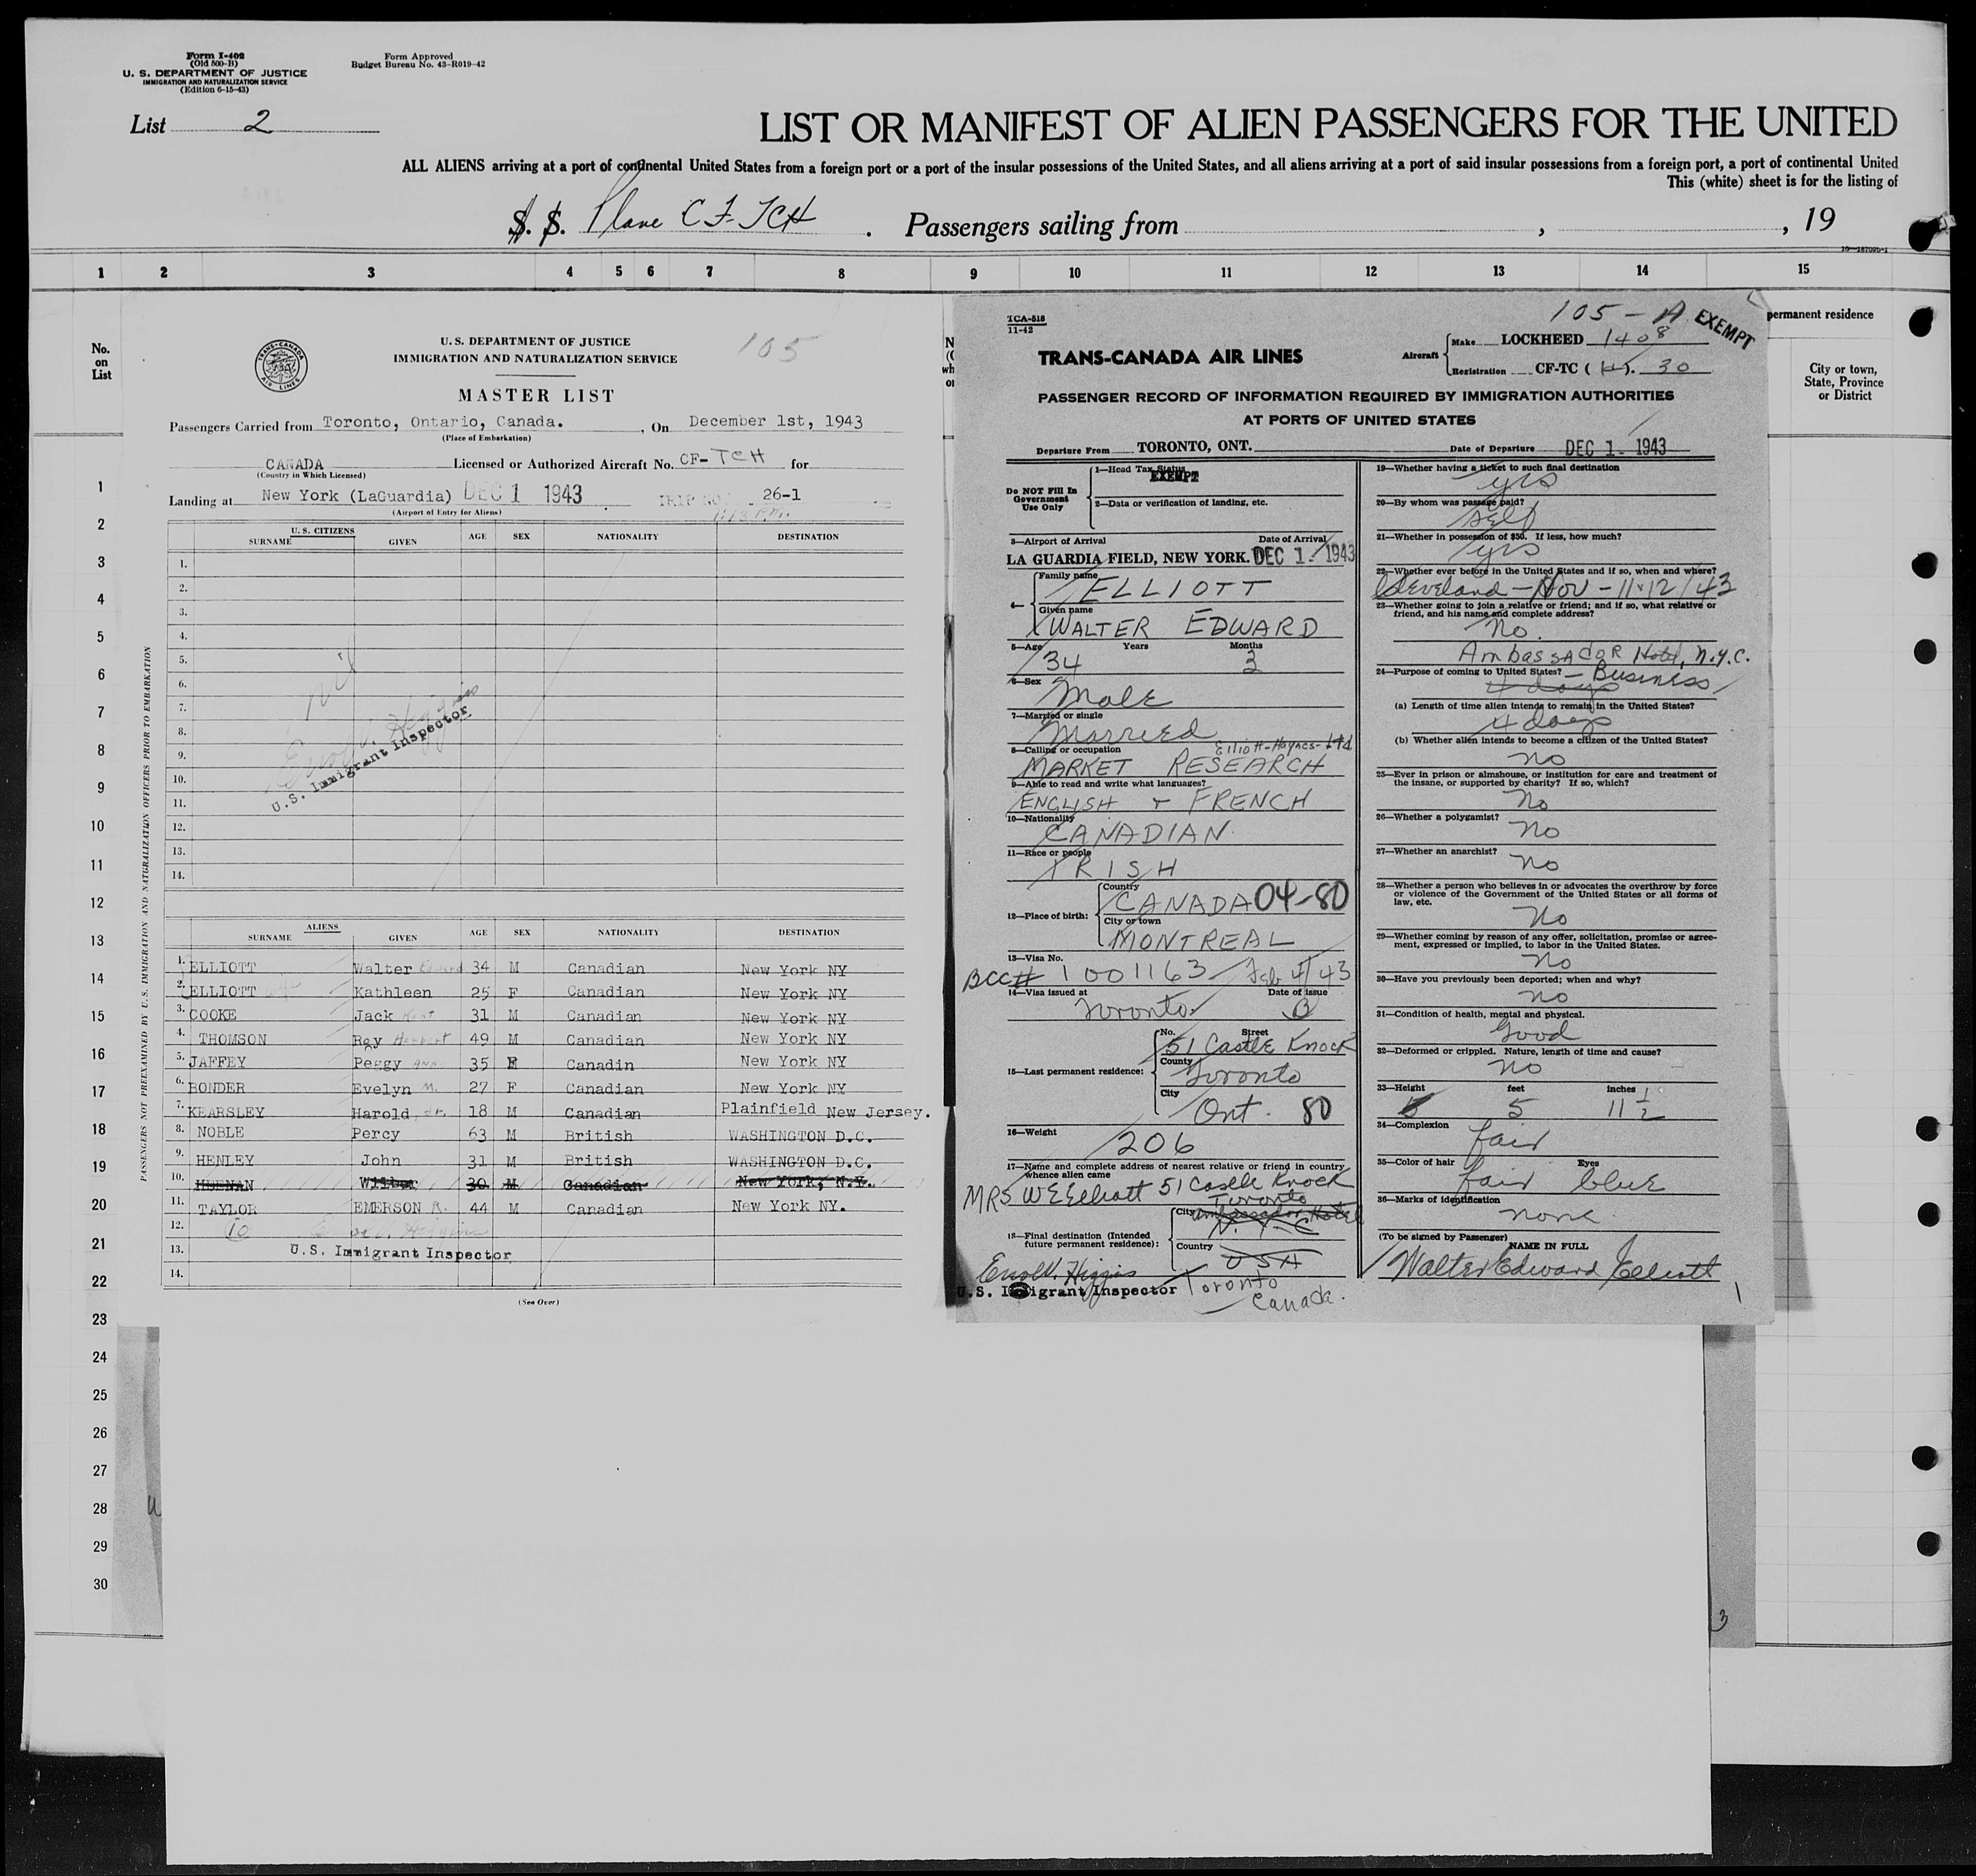 Form I-402
(Old 500-B)
U. S. DEPARTMENT OF JUSTICE
IMMIGRATION AND NATURALIZATION SERVICE
(Edition 6-15-43)
Form Approved
Budget Bureau No. 43-R019-42
List 2
LIST OR MANIFEST OF ALIEN PASSENGERS FOR THE UNITED
ALL ALIENS arriving at a port of continental United States from a foreign port or a port of the insular possessions of the United States, and all aliens arriving at a port of said insular possessions from a foreign port, a port of continental United
This (white) sheet is for the listing of
S. S. Plane CF-TCH . Passengers sailing from , , 19
1 2 3 4 5 6 7 8 9 10 11 12 13 14 15
No. on List
permanent residence
City or town, State, Province or District
1
2
3
4
5
6
7
8
9
10
11
12
13
14
15
16
17
18
19
20
21
22
23
24
25
26
27
28
29
30
PASSENGERS NOT PREEXAMINED BY U.S. IMMIGRATION AND NATURALIZATION OFFICERS PRIOR TO EMBARKATION
TRANS-CANADA AIR LINES
U.S. DEPARTMENT OF JUSTICE
IMMIGRATION AND NATURALIZATION SERVICE
105
MASTER LIST
Passengers Carried from Toronto, Ontario, Canada. , On December 1st, 1943
(Place of Embarkation)
CANADA Licensed or Authorized Aircraft No. CF-TCH for
(Country in Which Licensed)
Landing at New York (LaGuardia) DEC 1 1943 TRIP NO. 26-1
(Airport of Entry for Aliens)
U.S. CITIZENS
SURNAME GIVEN AGE SEX NATIONALITY DESTINATION
1.
2.
3.
4.
5.
6.
7.
8.
9.
10.
11.
12.
13.
14.
nil
U.S. Immigrant Inspector
ALIENS
SURNAME GIVEN AGE SEX NATIONALITY DESTINATION
1. ELLIOTT Walter Edward 34 M Canadian New York NY
2. ELLIOTT wife Kathleen 25 F Canadian New York NY
3. COOKE Jack Kent 31 M Canadian New York NY
4. THOMSON Roy Herbert 49 M Canadian New York NY
5. JAFFEY Peggy Anne 35 F Canadin New York NY
6. BONDER Evelyn M. 27 F Canadian New York NY
7. KEARSLEY Harold Jr. 18 M Canadian Plainfield New Jersey.
8. NOBLE Percy 63 M British WASHINGTON D.C.
9. HENLEY John 31 M British WASHINGTON D.C.
10. HEENAN Wilber 30 M Canadian New York, N.Y.
11. TAYLOR EMERSON R. 44 M Canadian New York NY.
12. 10 Errol V. Higgins
13. U.S. Immigrant Inspector
14.
(See Over)
TCA-518
11-42
105-A
EXEMPT
TRANS-CANADA AIR LINES
Aircraft Make LOCKHEED 1408
Registration CF-TC (H). 30
PASSENGER RECORD OF INFORMATION REQUIRED BY IMMIGRATION AUTHORITIES
AT PORTS OF UNITED STATES
Departure From TORONTO, ONT. Date of Departure DEC 1 - 1943
Do NOT Fill In Government Use Only
1—Head Tax Status
EXEMPT
2—Data or verification of landing, etc.
3—Airport of Arrival Date of Arrival
LA GUARDIA FIELD, NEW YORK. DEC 1 - 1943
4— Family name
ELLIOTT
Given name
WALTER EDWARD
5—Age Years Months
34 3
6—Sex
Male
7—Married or single
Married
8—Calling or occupation Elliott-Haynes-Ltd
MARKET RESEARCH
9—Able to read and write what languages?
ENGLISH + FRENCH
10—Nationality
CANADIAN
11—Race or people
IRISH
12—Place of birth: Country
CANADA 04-80
City or town
MONTREAL
13—Visa No.
BCC# 1001163 Feb 4/43
14—Visa issued at Date of issue
Toronto B
15—Last permanent residence: No. Street
51 Castle Knock
County
Toronto
City
Ont. 80
16—Weight
206
17—Name and complete address of nearest relative or friend in country whence alien came
MRS W E Elliott 51 Castle Knock
Toronto
18—Final destination (Intended future permanent residence): City Ambassador Hotel
N.Y.C
Country USA
Toronto
Canada.
Errol V. Higgins
U.S. Immigrant Inspector
19—Whether having a ticket to such final destination
yes
20—By whom was passage paid?
self
21—Whether in possession of $50. If less, how much?
yes
22—Whether ever before in the United States and if so, when and where?
Cleveland - Nov - 11-12/43
23—Whether going to join a relative or friend; and if so, what relative or friend, and his name and complete address?
No.
Ambassador Hotel, N.Y.C.
24—Purpose of coming to United States? - Business
4 days
(a) Length of time alien intends to remain in the United States?
4 days
(b) Whether alien intends to become a citizen of the United States?
no
25—Ever in prison or almshouse, or institution for care and treatment of the insane, or supported by charity? If so, which?
No
26—Whether a polygamist?
No
27—Whether an anarchist?
No
28—Whether a person who believes in or advocates the overthrow by force or violence of the Government of the United States or all forms of law, etc.
No
29—Whether coming by reason of any offer, solicitation, promise or agreement, expressed or implied, to labor in the United States.
No
30—Have you previously been deported; when and why?
no
31—Condition of health, mental and physical.
Good
32—Deformed or crippled. Nature, length of time and cause?
no
33—Height feet inches
5 11 1/2
34—Complexion
fair
35—Color of hair Eyes
fair blue
36—Marks of identification
none
(To be signed by Passenger)
NAME IN FULL
Walter Edward Elliott